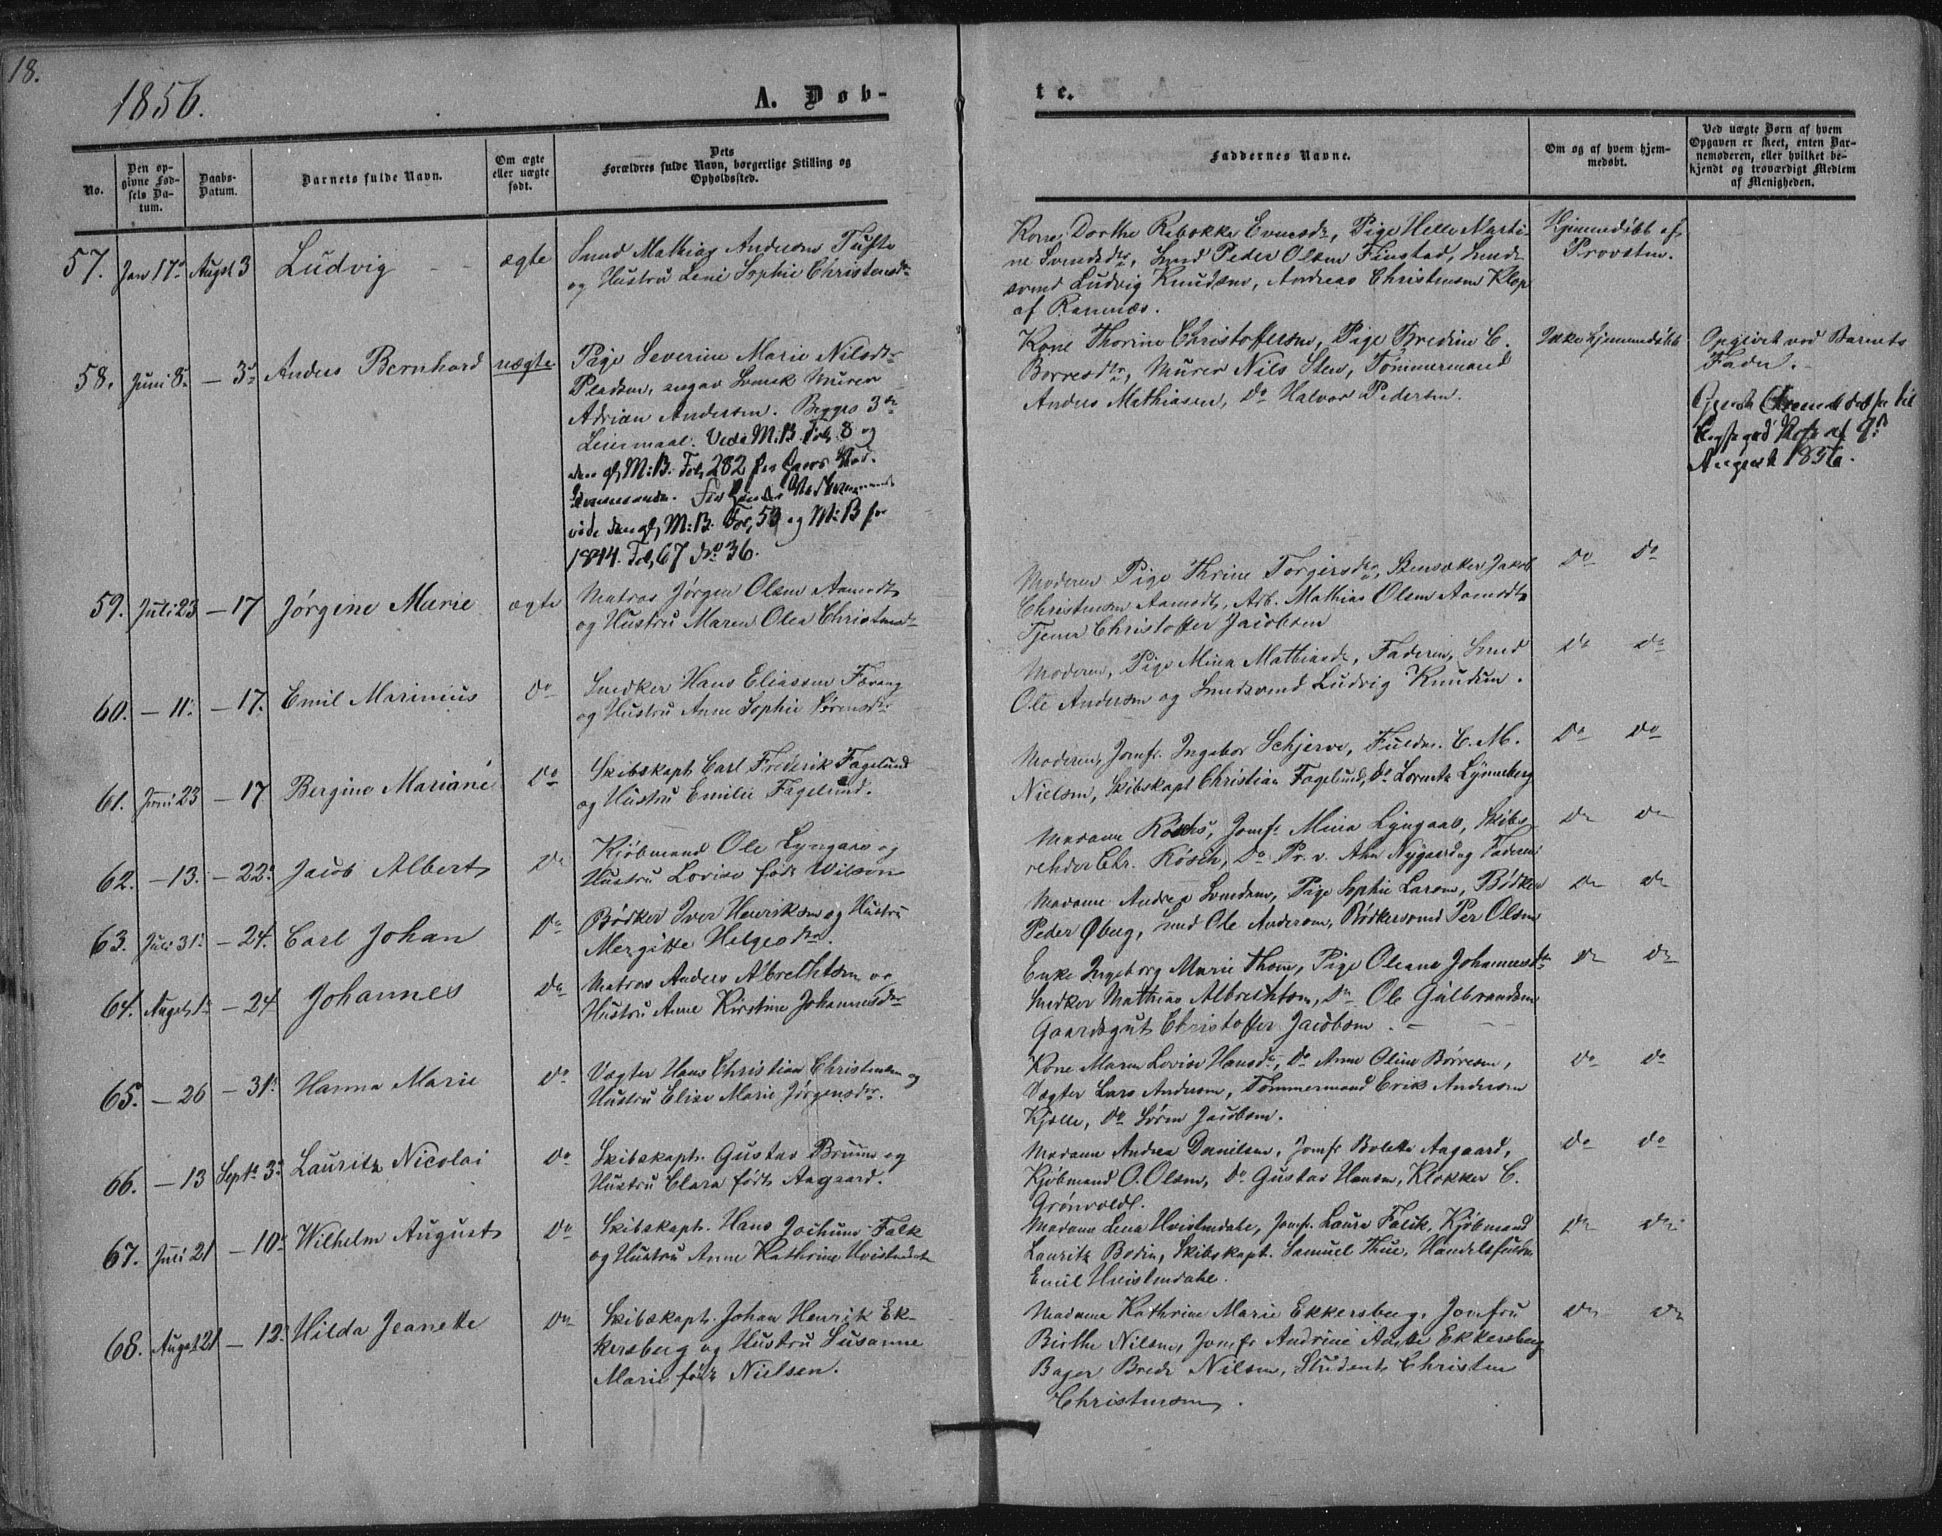 18.
1856.
A. Døb-
te.
No.
Den op-
givne Fød-
sels Da-
tum.
Daabs-
Datum.
Barnets fulde Navn.
Om ægte
eller uægte
født.
Dets
Forældres fulde Navn, borgerlige Stilling og
Opholdssted.
Faddernes Navne.
Om og af hvem hjem-
medøbt.
Ved uægte Børn af hvem
Opgaven er skeet, enten Bar-
nemoderen, eller hvilket be-
kjendt og troværdigt Medlem
af Menigheden.
57. Jan 17de Augst 3 Ludvig ægte
Smed Mathias Andersen Tufte
og Hustru Leni Sophie Christensdr
Kone Dorthe Rebekka Evensdr, Pige Helle Marti-
ne Svendsdtr, Smed Peder Olsen Finstad, Smede-
svend Ludvig Knudsen, Andreas Christensen Klop
af Ramnæs.
Hjemmedøbt af
Provsten.
58. Juni 8. — 3de Anders Bernhard uægte
Pige Severine Marie Nilsdtr
Pladsen, angav Svensk Murer
Adrian Andersen. Begges 3de
Leiermaal. Vide M.B. Fol. 8 og
M.B. Fol. 282 for
vide M.B. Fol. 53 og M.B for
1844. Fol. 67 No 36.
Kone Thorine Christoffersen, Pige Bredine C.
Borresdtr, Murer Nils Sten, Tømmermand
Anders Mathiasen, Do Halvor Pedersen.
Ikke hjemmedøbt
Opgivet ved Barnets
Fader.
Note af 9de
August 1856.
59. Juli 23 — 17 Jørgine Marie ægte
Matros Jørgen Olsen Aamodt
og Hustru Maren Olea Christensdr
Moderen, Pige Thrine Torgersdtr, Jakob
Christensen Aamodt, Arb. Mathias Olsen Aamodt,
Tjener Christoffer Jacobsen
Do Do
60. — 11. — 17. Emil Marinius Do
Snedker Hans Eliassen Farang
og Hustru Anne Sophie Sørensdr
Moderen, Pige Mina Mathiasdr, Faderen, Smed
Ole Andersen og Smedsvend Ludvig Knudsen.
Do Do
61. Juni 23 — 17 Bergine Mariane Do
Skibskapt. Carl Frederik Fagelund
og Hustru Emilie Fagelund.
Moderen, Jomfr. Ingebor Schjerve, Fuldm. C. M.
Nielsen, Skibskapt Christian Fagelund, Do Lorentz Lynneberg
Do Do
62. — 13. — 22. Jacob Albert Do
Kjøbmand Ole Lyngaas og
Hustru Lovise født Wilson
Madame Røschs, Jomfr. Mina Lyngaas, Skibs-
rehder Chr. Røsch, Do Pr. v. Ahn Nygaard og Faderen
Do Do
63. Juli 31. — 24. Carl Johan Do
Bødker Iver Henriksen og Hustru
Mergitte Helgesdr.
Madame Andrea Svendsen, Pige Sophie Larsen, Bødker
Peder Øberg, Smed Ole Andersen, Bødkersvend Per Olsen
Do Do
64. Augst 1. — 24 Johannes Do
Matros Anders Albrechtsen og
Hustru Anne Kirstine Johannesdr
Enke Ingeborg Marie Thom, Pige Oleane Johannesdtr
Snedker Mathias Albrechtsen, Do Ole Gulbrandsen
Gaardsgut Christoffer Jacobsen.
Do Do
65. — 26 — 31. Hanna Marie Do
Vægter Hans Christian Christensen og
Hustru Elise Marie Jørgensdr.
Kone Maren Lovise Hansdr, Do Anne Oline Børresen,
Vægter Lars Andersen, Tømmermand Erik Andersen
Kjolle, Do Søren Jacobsen.
Do Do
66. — 13 Septr 3. Lauritz Nicolai Do
Skibskapt. Gustav Bruun og
Hustru Clara født Aagaard.
Madame Andrea Danielsen, Jomfr Bolette Aagaard,
Kjøbmand O. Olsen, Do Gustav Hansen, Klokker C.
Grønvold.
Do Do
67. Juni 21 — 10. Wilhelm August Do
Skibskapt. Hans Jochum Falk
og Hustru Anne Kathrine Hvistendal
Madame Lena Hvistendahl, Jomfr. Laura Falck, Kjøbmand
Lauritz Bodin, Skibskapt. Samuel Thue, Handelsfuldm
Emil Hvistendahl.
Do Do
68. Augst 21 — 12. Hilda Jeanette Do
Skibskapt. Johan Henrik Ek-
kersberg og Hustru Susanne
Marie født Nielsen.
Madame Kathrine Marie Ekkersberg, Jomfru
Birthe Nilsen, Jomfr Andrine Ekkersberg
Bager Brede Nilsen, Student Christen
Christensen.
Do Do